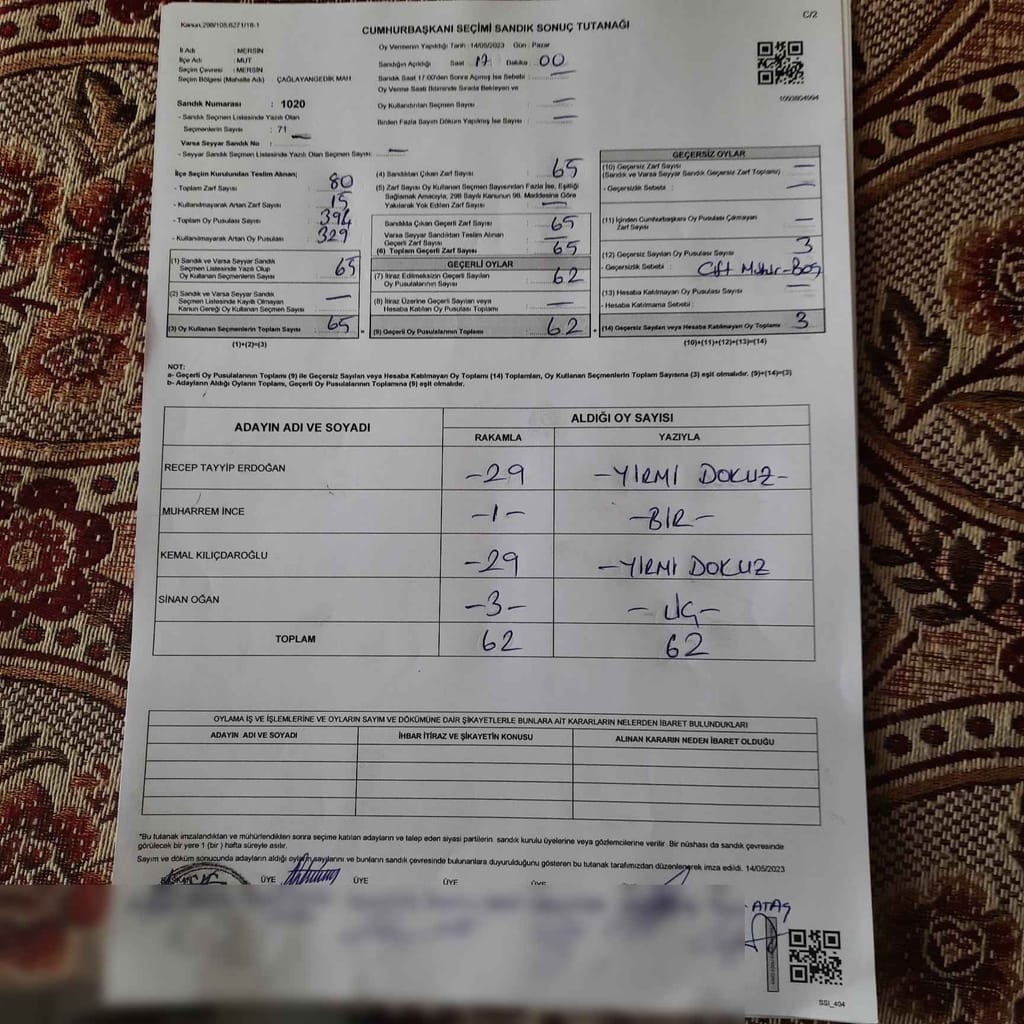 Kanun:298/105,6271/18-1
C/2
CUMHURBAŞKANI SEÇİMİ SANDIK SONUÇ TUTANAĞI
İl Adı : MERSİN
İlçe Adı : MUT
Seçim Çevresi : MERSİN
Seçim Bölgesi (Mahalle Adı) : ÇAĞLAYANGEDİK MAH
Sandık Numarası : 1020
- Sandık Seçmen Listesinde Yazılı Olan
Seçmenlerin Sayısı : 71
Varsa Seyyar Sandık No :
- Seyyar Sandık Seçmen Listesinde Yazılı Olan Seçmen Sayısı: —
Oy Vermenin Yapıldığı Tarih :14/05/2023 Gün : Pazar
Sandığın Açıldığı Saat 17 Dakika 00
Sandık Saat 17.00'den Sonra Açılmış İse Sebebi : —
Oy Verme Saati Bitiminde Sırada Bekleyen ve
Oy Kullandırılan Seçmen Sayısı —
Birden Fazla Sayım Döküm Yapılmış İse Sayısı : —
İlçe Seçim Kurulundan Teslim Alınan;
- Toplam Zarf Sayısı 80
- Kullanılmayarak Artan Zarf Sayısı 15
- Toplam Oy Pusulası Sayısı 394
- Kullanılmayarak Artan Oy Pusulası 329
(1) Sandık ve Varsa Seyyar Sandık
Seçmen Listesinde Yazılı Olup
Oy Kullanan Seçmenlerin Sayısı 65
(2) Sandık ve Varsa Seyyar Sandık
Seçmen Listesinde Kayıtlı Olmayan
Kanun Gereği Oy Kullanan Seçmenlerin Sayısı —
(3) Oy Kullanan Seçmenlerin Toplam Sayısı 65
(1)+(2)=(3)
(4) Sandıktan Çıkan Zarf Sayısı 65
(5) Zarf Sayısı Oy Kullanan Seçmen Sayısından Fazla İse, Eşitliği
Sağlamak Amacıyla, 298 Sayılı Kanunun 98. Maddesine Göre
Yakılarak Yok Edilen Zarf Sayısı —
Sandıkta Çıkan Geçerli Zarf Sayısı 65
Varsa Seyyar Sandıktan Teslim Alınan
Geçerli Zarf Sayısı —
(6) Toplam Geçerli Zarf Sayısı 65
GEÇERLİ OYLAR
(7) İtiraz Edilmeksizin Geçerli Sayılan
Oy Pusulalarının Sayısı 62
(8) İtiraz Üzerine Geçerli Sayılan veya
Hesaba Katılan Oy Pusulası Toplamı —
(9) Geçerli Oy Pusulalarının Toplamı 62
GEÇERSİZ OYLAR
(10) Geçersiz Zarf Sayısı —
(Sandık ve Varsa Seyyar Sandık Geçersiz Zarf Toplamı)
- Geçersizlik Sebebi : —
(11) İçinden Cumhurbaşkanı Oy Pusulası Çıkmayan
Zarf Sayısı —
(12) Geçersiz Sayılan Oy Pusulası Sayısı 3
- Geçersizlik Sebebi : Çift Mühür-Boş
(13) Hesaba Katılmayan Oy Pusulası Sayısı —
- Hesaba Katılmama Sebebi :
(14) Geçersiz Sayılan veya Hesaba Katılmayan Oy Toplamı 3
(10)+(11)+(12)+(13)=(14)
NOT:
a- Geçerli Oy Pusulalarının Toplamı (9) ile Geçersiz Sayılan veya Hesaba Katılmayan Oy Toplamı (14) Toplamları, Oy Kullanan Seçmenlerin Toplam Sayısına (3) eşit olmalıdır. (9)+(14)=(3)
b- Adayların Aldığı Oyların Toplamı, Geçerli Oy Pusulalarının Toplamına (9) eşit olmalıdır.
ADAYIN ADI VE SOYADI
ALDIĞI OY SAYISI
RAKAMLA YAZIYLA
RECEP TAYYİP ERDOĞAN -29 -YİRMİ DOKUZ-
MUHARREM İNCE -1- -BİR-
KEMAL KILIÇDAROĞLU -29 -YİRMİ DOKUZ
SİNAN OĞAN -3- -ÜÇ-
TOPLAM 62 62
OYLAMA İŞ VE İŞLEMLERİNE VE OYLARIN SAYIM VE DÖKÜMÜNE DAİR ŞİKAYETLERLE BUNLARA AİT KARARLARIN NELERDEN İBARET BULUNDUKLARI
ADAYIN ADI VE SOYADI İHBAR İTİRAZ VE ŞİKAYETİN KONUSU ALINAN KARARIN NEDEN İBARET OLDUĞU
*Bu tutanak imzalandıktan ve mühürlendikten sonra seçime katılan adayların ve talep eden siyasi partilerin sandık kurulu üyelerine veya gözlemcilerine verilir. Bir nüshası da sandık çevresinde
görülecek bir yere 1 (bir) hafta süreyle asılır.
Sayım ve döküm sonucunda adayların aldığı oyların sayılarını ve bunların sandık çevresinde bulunanlara duyurulduğunu gösteren bu tutanak tarafımızdan düzenlenerek imza edildi. 14/05/2023
BAŞKAN ÜYE ÜYE ÜYE ÜYE
ATAŞ
SSİ_404